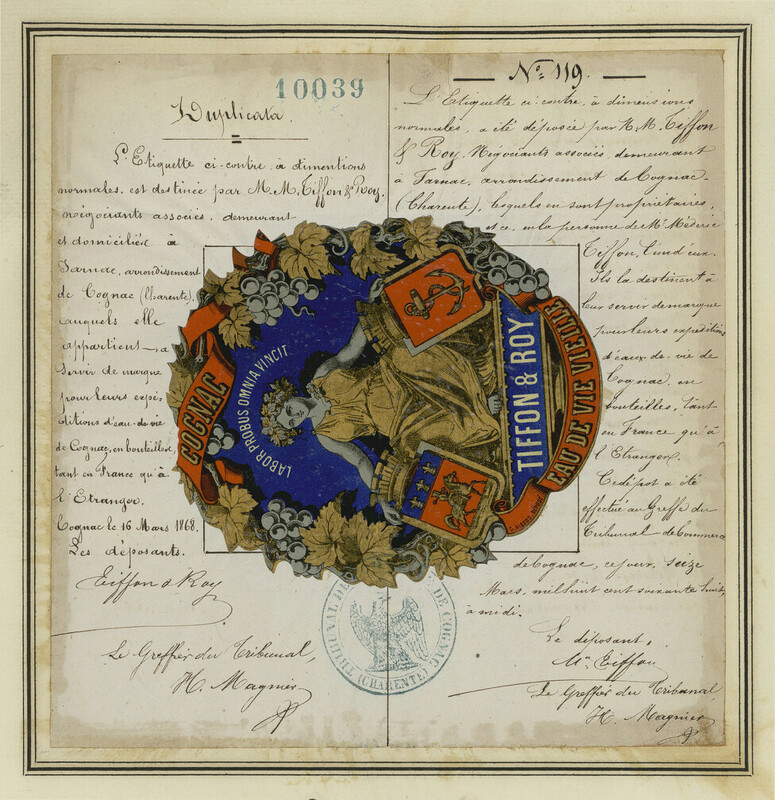 10039
Duplicata.
L'Etiquette ci-contre, à dimentions
normales, est destinée par M.M. Tiffon & Roy,
négociants associés, demeurant
et domiciliés à
Jarnac, arrondissement
de Cognac (Charente),
auxquels elle
appartient, à
servir de marque
pour leurs expé-
ditions d'eau-de-vie
de Cognac, en bouteilles,
tant en France qu'à
l'Etranger.
Cognac le 16 Mars 1868.
Les déposants.
Tiffon & Roy
Le Greffier du Tribunal,
H. Magnier
No. 119.
L'Etiquette ci-contre, à dimensions
normales, a été déposée par M.M. Tiffon
& Roy, Négociants associés, demeurant
à Jarnac, arrondissement de Cognac
(Charente), lesquels en sont propriétaires,
et ce, en la personne de Mr. Méderic
Tiffon, l'un d'eux.
Ils la destinent à
leur servir de marque
pour leurs expéditions
d'eaux-de-vie de
Cognac, en
bouteilles, tant
en France qu'à
l'Etranger.
Ce dépot a été
effectué au Greffe du
Tribunal de Commerce
de Cognac, ce jour, seize
Mars, mil huit cent soixante huit,
à midi.
Le déposant,
Mc. Tiffon
Le Greffier du Tribunal
H. Magnier
COGNAC
LABOR PROBUS OMNIA VINCIT
TIFFON & ROY
EAU DE VIE VIEILLE
TRIBUNAL DE
DE COGNAC
(CHARENTE)